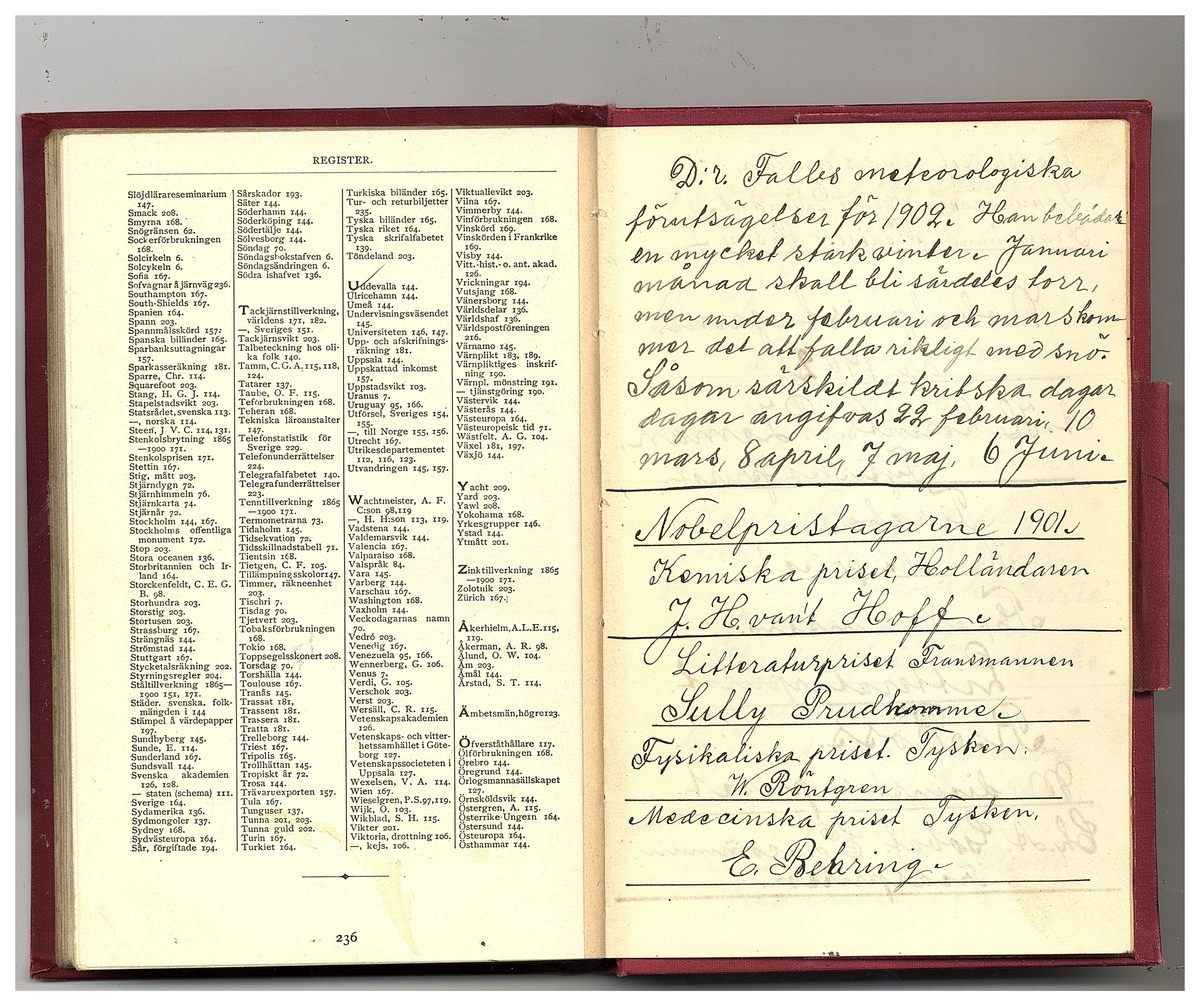 REGISTER.
Slöjdlärareseminarium
147.
Smack 208.
Smyrna 168.
Snögränsen 62.
Sockerförbrukningen
168.
Solcirkeln 6.
Solcykeln 6.
Sofia 167.
Sofvagnar å järnväg 236.
Southampton 167.
South-Shields 167.
Spanien 164.
Spann 203.
Spannmålsskörd 157:
Spanska biländer 165.
Sparbanksuttagningar
157.
Sparkasseräkning 181.
Sparre, Chr. 114.
Squarefoot 203.
Stang, H. G. J. 114.
Stapelstadsvikt 203.
Statsrådet, svenska 113.
—, norska 114.
Steen, J. V. C. 114, 131.
Stenkolsbrytning 1865
—1900 171.
Stenkolsprisen 171.
Stettin 167.
Stig, mått 203.
Stjärndygn 72.
Stjärnhimmeln 76.
Stjärnkarta 74.
Stjärnår 72.
Stockholm 144, 167.
Stockholms offentliga
monument 172.
Stop 203.
Stora oceanen 136.
Storbritannien och Ir-
land 164.
Storckenfeldt, C. E. G.
B. 98.
Storhundra 203.
Storstig 203.
Stortusen 203.
Strassburg 167.
Strängnäs 144.
Strömstad 144.
Stuttgart 167.
Stycketalsräkning 202.
Styrningsregler 204.
Ståltillverkning 1865—
1900 151, 171.
Städer, svenska, folk-
mängden i 144
Stämpel å värdepapper
197.
Sundbyberg 145.
Sunde, E. 114.
Sunderland 167.
Sundsvall 144.
Svenska akademien
126, 128.
— staten (schema) 111.
Sverige 164.
Sydamerika 136.
Sydmongoler 137.
Sydney 168.
Sydvästeuropa 164.
Sår, förgiftade 194.
Sårskador 193.
Säter 144.
Söderhamn 144.
Söderköping 144.
Södertälje 144.
Sölvesborg 144.
Söndag 70.
Söndagsbokstafven 6.
Söndagsändringen 6.
Södra ishafvet 136.
Tackjärnstillverkning,
världens 171, 182.
—, Sveriges 151.
Tackjärnsvikt 203.
Talbeteckning hos oli-
ka folk 140.
Tamm, C. G. A. 115, 118,
124.
Tatarer 137.
Taube, O. F. 115.
Teförbrukningen 168.
Teheran 168.
Tekniska läroanstalter
147.
Telefonstatistik för
Sverige 229.
Telefonunderrättelser
224.
Telegrafalfabetet 140.
Telegrafunderrättelser
223.
Tenntillverkning 1865
—1900 171.
Termometrarna 73.
Tidaholm 145.
Tidsekvation 72.
Tidsskillnadstabell 71.
Tientsin 168.
Tietgen, C. F. 105.
Tillämpningsskolor 147.
Timmer, räkneenhet
203.
Tischri 7.
Tisdag 70.
Tjetvert 203.
Tobaksförbrukningen
168.
Tokio 168.
Toppsegelsskonert 208.
Torsdag 70.
Torshälla 144.
Toulouse 167.
Tranås 145.
Trassat 181,
Trassent 181.
Trassera 181.
Tratta 181.
Trelleborg 144.
Triest 167.
Tripolis 165.
Trollhättan 145.
Tropiskt år 72.
Trosa 144.
Trävaruexporten 157.
Tula 167.
Tunguser 137.
Tunna 201, 203.
Tunna guld 202.
Turin 167.
Turkiet 164.
Turkiska biländer 165.
Tur- och returbiljetter
235.
Tyska biländer 165.
Tyska riket 164.
Tyska skrifalfabetet
139.
Töndeland 203.
Uddevalla 144.
Ulricehamn 144.
Umeå 144.
Undervisningsväsendet
145.
Universiteten 146, 147.
Upp- och afskrifnings-
räkning 181.
Uppsala 144.
Uppskattad inkomst
157.
Uppstadsvikt 203.
Uranus 7.
Uruguay 95, 166.
Utförsel, Sveriges 154,
155.
—, till Norge 155, 156.
Utrecht 167.
Utrikesdepartementet
112, 116, 123.
Utvandringen 145, 157.
Wachtmeister, A. F.
C:son 98, 119
—, H. H:son 113, 119.
Vadstena 144.
Valdemarsvik 144.
Valencia 167.
Valparaiso 168.
Valspråk 84.
Vara 145.
Varberg 144.
Varschau 167.
Washington 168.
Vaxholm 144.
Veckodagarnas namn
70.
Vedró 203.
Venedig 167.
Venezuela 95, 166.
Wennerberg, G. 106.
Venus 7.
Verdi, G. 105.
Verschok 203.
Verst 203.
Wersäll, C. R. 115.
Vetenskapsakademien
126.
Vetenskaps- och vitter-
hetssamhället i Göte-
borg 127.
Vetenskapssocieteten i
Uppsala 127.
Wexelsen, V. A. 114.
Wien 167.
Wieselgren, P. S. 97, 119.
Wijk, O. 103.
Wikblad, S. H. 115.
Vikter 201.
Viktoria, drottning 106.
—, kejs. 106.
Viktualievikt 203.
Vilna 167.
Vimmerby 144.
Vinförbrukningen 168.
Vinskörd 169.
Vinskörden i Frankrike
169.
Visby 144.
Vitt.-hist.- o. ant. akad.
126.
Vrickningar 194.
Vutsjang 168.
Vänersborg 144.
Världsdelar 136.
Världshaf 136.
Världspostföreningen
216.
Värnamo 145.
Värnplikt 183, 189.
Värnpliktiges inskrif-
ning 190.
Värnpl. mönstring 191.
— tjänstgöring 190.
Västervik 144.
Västerås 144.
Västeuropa 164.
Västeuropeisk tid 71.
Wästfelt, A. G. 104.
Växel 181, 197.
Växjö 144.
Yacht 209.
Yard 203.
Yawl 208.
Yokohama 168.
Yrkesgrupper 146.
Ystad 144.
Ytmått 201.
Zinktillverkning 1865
—1900 171.
Zolotnik 203.
Zürich 167.
Åkerhielm, A. L. E. 115,
119.
Åkerman, A. R. 98.
Ålund, O. W. 104.
Åm 203.
Åmål 144.
Årstad, S. T. 114.
Ämbetsmän, högre 123.
Öfverståthållare 117.
Ölförbrukningen 168.
Örebro 144.
Öregrund 144.
Örlogsmannasällskapet
127.
Örnsköldsvik 144.
Östergren, A. 115.
Österrike-Ungern 164.
Östersund 144.
Östeuropa 164.
Östhammar 144.
236
D:r. Falles meteorologiska
förutsägelser för 1902. Han bebådar
en mycket stark vinter. Januari
månad skall bli särdeles torr,
men under februari och mars kom-
mer det att falla rikligt med snö.
Såsom särskildt kritska dagar
dagar angifvas 22 februari, 10
mars, 8 april, 7 maj, 6 Juni.
Nobelpristagarne 1901.
Kemiska priset, Holländaren
J. H. van't Hoff.
Litteraturpriset Fransmannen
Sully Prudhomme.
Fysikaliska priset. Tysken.
W. Röntgren
Medecinska priset Tysken.
E. Behring.